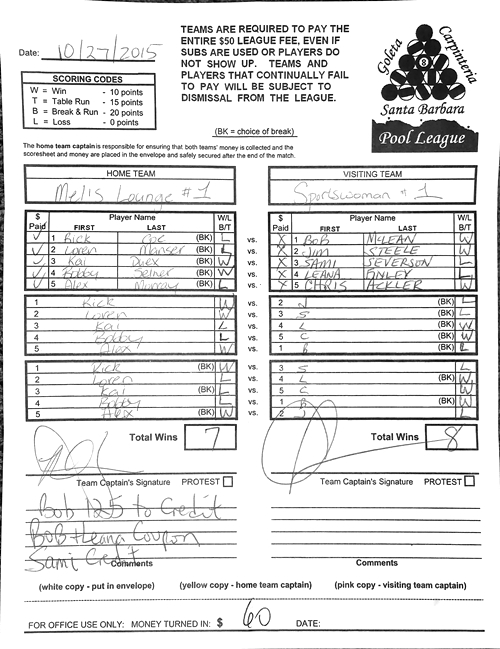 Date: 10/27/2015
TEAMS ARE REQUIRED TO PAY THE
ENTIRE $50 LEAGUE FEE, EVEN IF
SUBS ARE USED OR PLAYERS DO
NOT SHOW UP. TEAMS AND
PLAYERS THAT CONTINUALLY FAIL
TO PAY WILL BE SUBJECT TO
DISMISSAL FROM THE LEAGUE.
Goleta
Carpinteria
8
Santa Barbara
Pool League
SCORING CODES
W = Win - 10 points
T = Table Run - 15 points
B = Break & Run - 20 points
L = Loss - 0 points
(BK = choice of break)
The home team captain is responsible for ensuring that both teams' money is collected and the
scoresheet and money are placed in the envelope and safely secured after the end of the match.
HOME TEAM VISITING TEAM
Mel's Lounge #1 Sportswoman #1
$ Paid Player Name FIRST LAST W/L B/T $ Paid Player Name FIRST LAST W/L B/T
1 Rick Coe (BK) L vs. X 1 BOB McLEAN W
2 Loren (BK) L vs. X 2 Jim STEELE W
3 Kai (BK) W vs. X 3 SAMI SEVERSON L
4 Bobby (BK) W vs. X 4 LEANA FINLEY L
5 Alex Murray (BK) L vs. X 5 CHRIS ACKLER W
1 Rick W vs. 2 J (BK) L
2 Loren W vs. 3 S (BK) L
3 Kai L vs. 4 L (BK) W
4 Bobby L vs. 5 C (BK) W
5 Alex W vs. 1 B (BK) L
1 Rick (BK) W vs. 3 S L
2 Loren L vs. 4 L (BK) W
3 Kai (BK) L vs. 5 C W
4 Bobby L vs. 1 B (BK) W
5 Alex (BK) W vs. 2 J L
Total Wins 7 Total Wins 8
Team Captain's Signature PROTEST Team Captain's Signature PROTEST
Bob 125 to Credit
BOB + Leana Coupon
Sami Credit
Comments Comments
(white copy - put in envelope) (yellow copy - home team captain) (pink copy - visiting team captain)
FOR OFFICE USE ONLY: MONEY TURNED IN: $ 60 DATE: